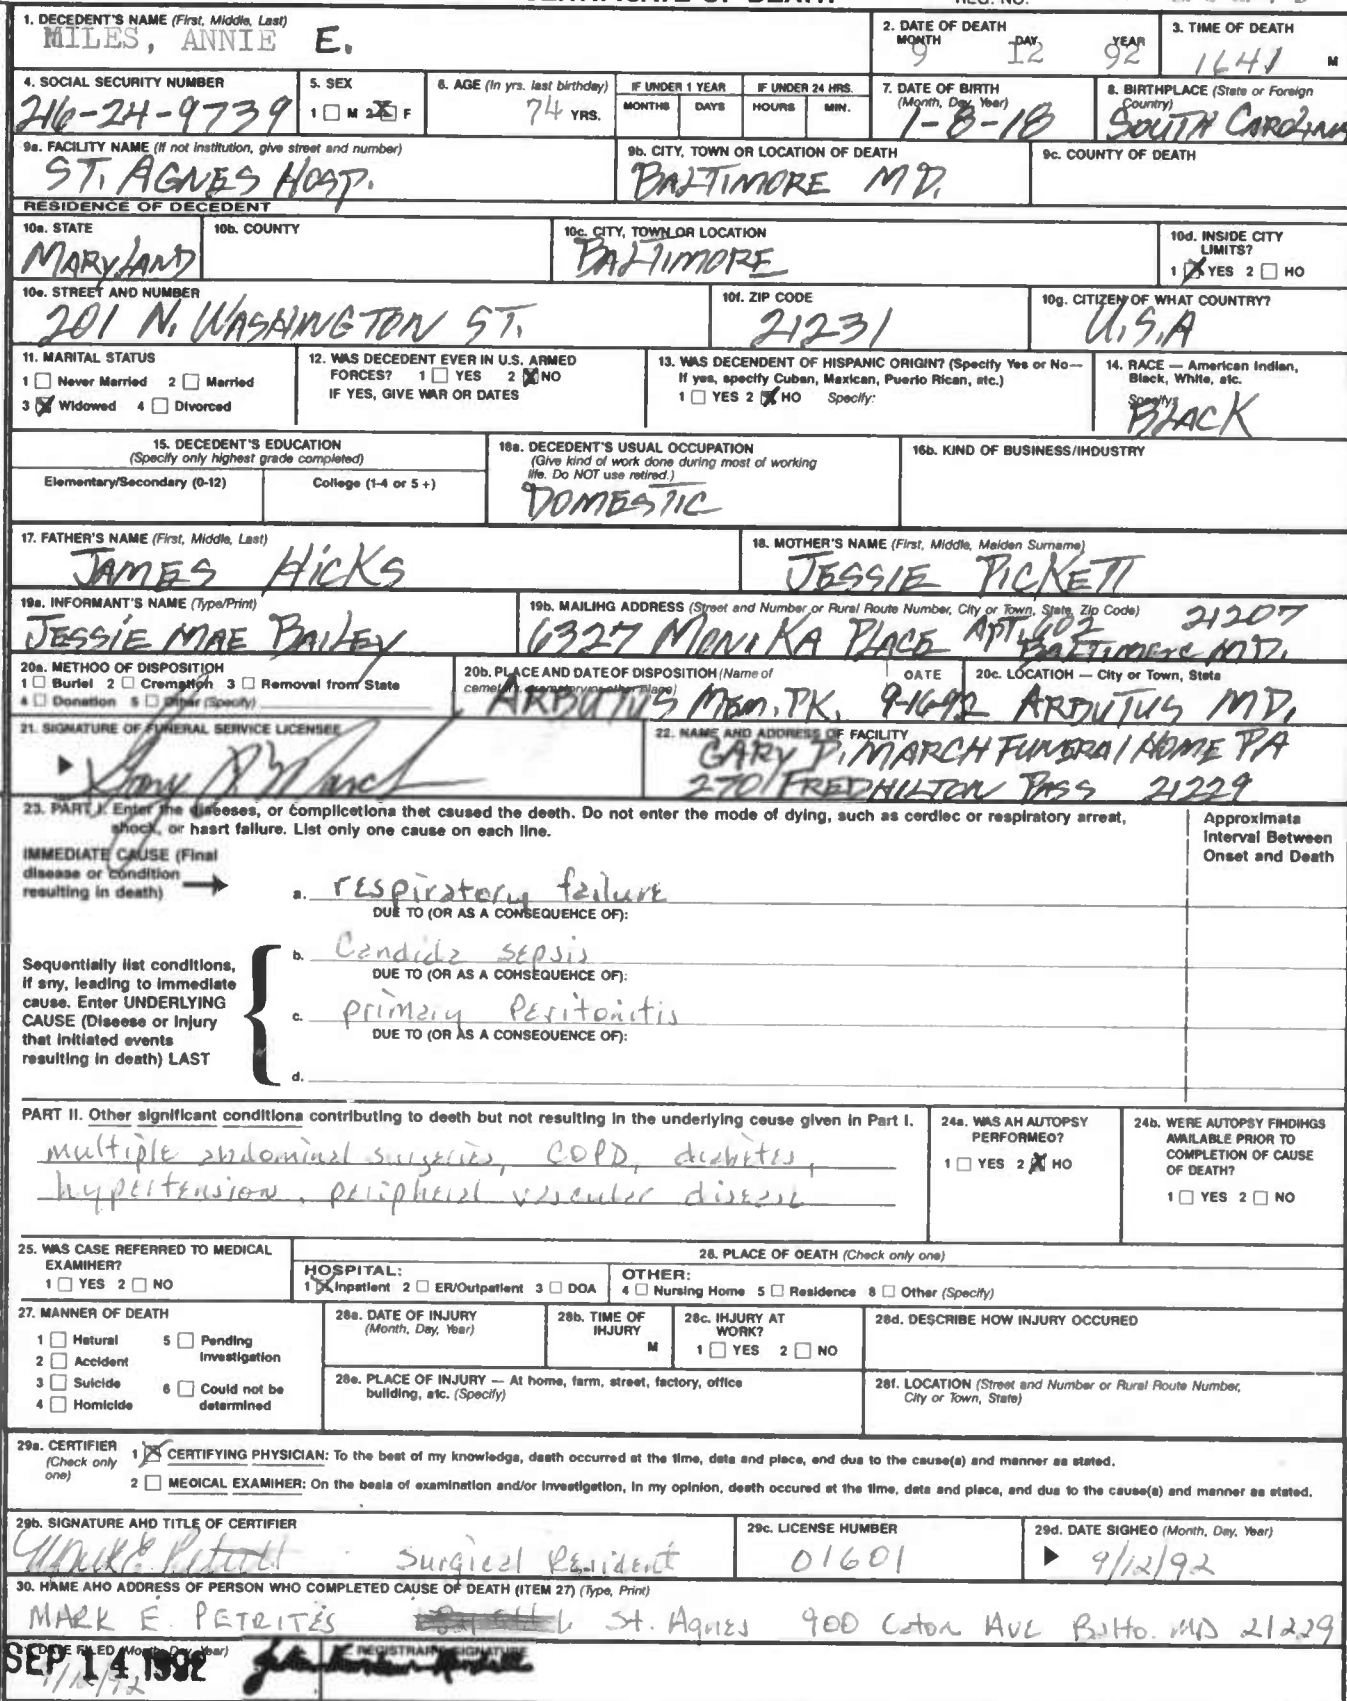 1. DECEDENT'S NAME (First, Middle, Last)
MILES, ANNIE E.
2. DATE OF DEATH
MONTH DAY YEAR
9 12 92
3. TIME OF DEATH
1641 M
4. SOCIAL SECURITY NUMBER
216-24-9739
5. SEX
1 M 2 X F
6. AGE (In yrs. last birthday)
74 YRS.
IF UNDER 1 YEAR
MONTHS DAYS
IF UNDER 24 HRS.
HOURS MIN.
7. DATE OF BIRTH
(Month, Day, Year)
1-8-18
8. BIRTHPLACE (State or Foreign
Country)
SOUTH CAROLINA
9a. FACILITY NAME (If not institution, give street and number)
ST. AGNES HOSP.
9b. CITY, TOWN OR LOCATION OF DEATH
BALTIMORE MD.
9c. COUNTY OF DEATH
RESIDENCE OF DECEDENT
10a. STATE
MARYLAND
10b. COUNTY
10c. CITY, TOWN OR LOCATION
BALTIMORE
10d. INSIDE CITY
LIMITS?
1 X YES 2 HO
10e. STREET AND NUMBER
201 N. WASHINGTON ST.
10f. ZIP CODE
21231
10g. CITIZEN OF WHAT COUNTRY?
U.S.A
11. MARITAL STATUS
1 Never Married 2 Married
3 X Widowed 4 Divorced
12. WAS DECEDENT EVER IN U.S. ARMED
FORCES? 1 YES 2 X NO
IF YES, GIVE WAR OR DATES
13. WAS DECENDENT OF HISPANIC ORIGIN? (Specify Yes or No—
If yes, specify Cuban, Maxican, Puerto Rican, etc.)
1 YES 2 X HO Specify:
14. RACE — American Indian,
Black, White, etc.
Specify:
BLACK
15. DECEDENT'S EDUCATION
(Specify only highest grade completed)
Elementary/Secondary (0-12) College (1-4 or 5 +)
16a. DECEDENT'S USUAL OCCUPATION
(Give kind of work done during most of working
life. Do NOT use retired.)
DOMESTIC
16b. KIND OF BUSINESS/IHDUSTRY
17. FATHER'S NAME (First, Middle, Last)
JAMES HICKS
18. MOTHER'S NAME (First, Middle, Maiden Surname)
JESSIE PICKETT
19a. INFORMANT'S NAME (Type/Print)
JESSIE MAE BAILEY
19b. MAILIHG ADDRESS (Street and Number or Rural Route Number, City or Town, State, Zip Code) 21207
6327 MONIKA PLACE APT. 602 BALTIMORE MD.
20a. METHOO OF DISPOSITION
1 Buriel 2 Cremation 3 Removal from State
4 Donation 5 Other (Specify)
20b. PLACE AND DATE OF DISPOSITION (Name of
cemetery, crematory or other place)
ARBUTUS MEM. PK.
OATE
9-16-92
20c. LOCATIOH — City or Town, Stata
ARBUTUS MD.
21. SIGNATURE OF FUNERAL SERVICE LICENSEE
22. NAME AND ADDRESS OF FACILITY
GARY P. MARCH FUNERAL HOME PA
270 FREDHILTON PASS 21229
23. PART I. Enter the diseeses, or complicetions thet caused the death. Do not enter the mode of dying, such as cerdiec or respiratory arreat,
shock, or hasrt failure. List only one cause on each line.
Approximata
Interval Between
Onset and Death
IMMEDIATE CAUSE (Final
disease or condition
resulting in death)
a. respiratory failure
DUE TO (OR AS A CONSEQUENCE OF):
b. Candida sepsis
DUE TO (OR AS A COHSEQUENCE OF):
c. primary Peritonitis
DUE TO (OR AS A CONSEOUENCE OF):
d.
Sequentially list conditions,
if any, leading to immediate
cause. Enter UNDERLYING
CAUSE (Diseese or Injury
that initiated events
resulting in death) LAST
PART II. Other significant conditiona contributing to deeth but not resulting in the underlying ceuse given in Part I.
multiple abdominal surgeries, COPD, diabetes,
hypertension, peripheral vascular disease
24a. WAS AH AUTOPSY
PERFORMEO?
1 YES 2 X HO
24b. WERE AUTOPSY FIHDIHGS
AVAILABLE PRIOR TO
COMPLETION OF CAUSE
OF DEATH?
1 YES 2 NO
25. WAS CASE REFERRED TO MEDICAL
EXAMIHER?
1 YES 2 NO
26. PLACE OF OEATH (Check only one)
HOSPITAL:
1 X Inpatient 2 ER/Outpatient 3 DOA
OTHER:
4 Nursing Home 5 Residence 6 Other (Specify)
27. MANNER OF DEATH
1 Hatural 5 Pending
2 Accident Investigation
3 Suicide 6 Could not be
4 Homicide determined
28a. DATE OF INJURY
(Month, Day, Year)
28b. TIME OF
IHJURY
M
28c. IHJURY AT
WORK?
1 YES 2 NO
28d. DESCRIBE HOW INJURY OCCURED
28e. PLACE OF INJURY — At home, farm, street, factory, office
building, atc. (Specify)
28f. LOCATION (Street and Number or Rural Route Number,
City or Town, State)
29a. CERTIFIER
(Check only
one)
1 X CERTIFYING PHYSICIAN: To the beat of my knowledga, daath occurred at the time, data and place, end due to the cause(a) and manner aa stated.
2 MEOICAL EXAMIHER: On the beala of examination and/or Investigation, in my opinion, death occured at the tlme, data and place, and due to the cause(a) and manner ae stated.
29b. SIGNATURE AHD TITLE OF CERTIFIER
Surgical Resident
29c. LICENSE HUMBER
01601
29d. DATE SIGHEO (Month, Day, Year)
9/12/92
30. HAME AHO ADDRESS OF PERSON WHO COMPLETED CAUSE OF DEATH (ITEM 27) (Type, Print)
MARK E. PETRITES St. Agnes 900 Caton Ave Balto. MD 21229
DATE FILED (Month, Day, Year)
SEP 14 1992
REGISTRAR'S SIGNATURE